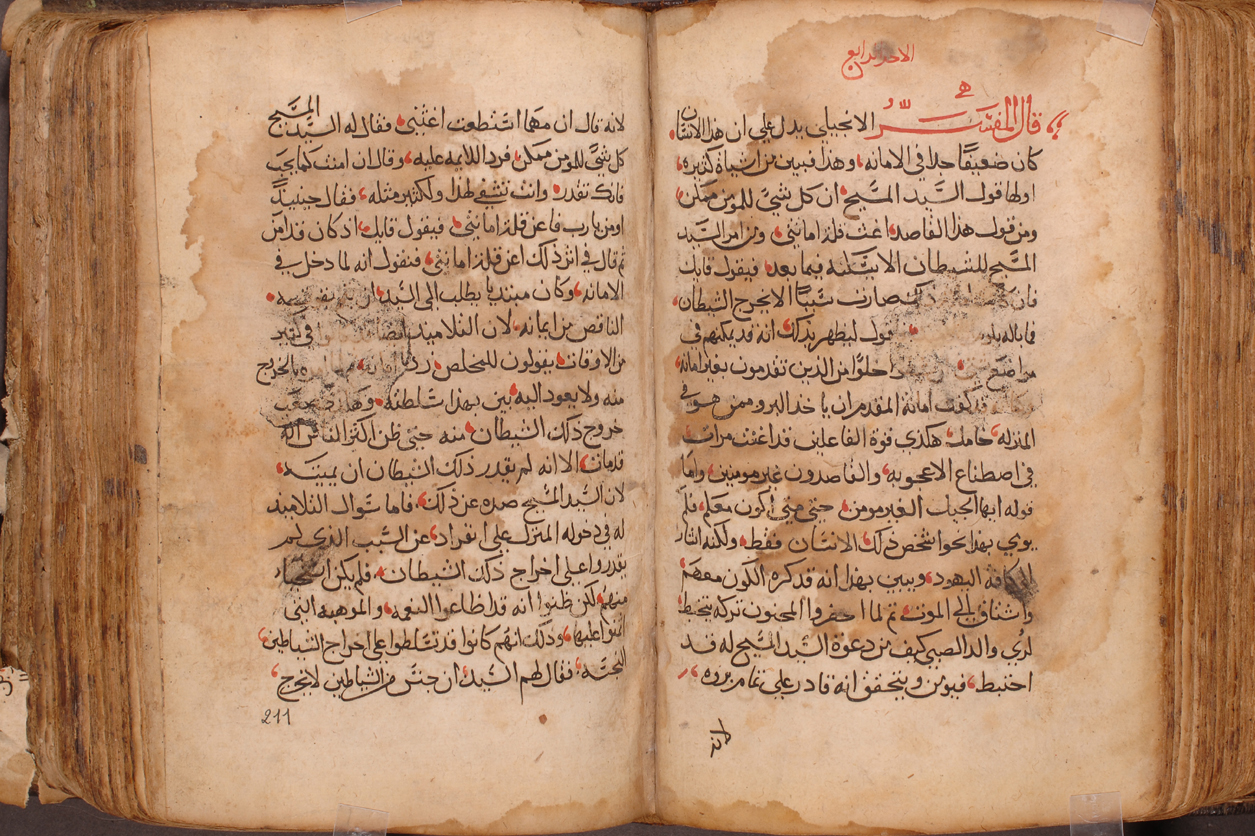 الاحد الرابع
قال المفسر الانجيلى يدل على ان هذا الانسان
كان ضعيفا جدا فى الامانه وهذا فبين من اشياء كثيره
اولها قول السيد المسيح ان كل شيىً للمومن ممكن
ومن قول هذا القاصد اعنت قلة امانتى ومن امر السيد
المسيح للشيطان الا يتله فيما بعد فيقول قايل
فان صارت سببًا الا يخرج الشيطان
فما باله قول ليظهر بذلك انه قد يكنهم فى
مواضع خلوًا من الذين تقدمون بغير امانه
قد كفت امانة المقدم ان ياخد البرو ممن هو فى
المنزله خامله هكذى قوة الفاعلين قد اغنت مرات
فى اصطناع الاعجوبه والقاصدون غير مومنين واما
قوله ايها الجيل الغير مومن حتى متى اكون معكم فلم
يومى بهذا نحوا شخص ذلك الانسان فقط ولكنه اشار
الى كافة اليهود ويبين بهذا انه قد كره الكون معهم
واشتاق الى الموت ثم لما احضروا المجنون تركه يتخبط
لرى والد الصبي كيف من دعوة السيد المسيح له قد
اختبط فيومن ويتحقق انه قادر على تمام بروه
لانه
لانه قال ان مهما استطعت اغثنى فقال له السيد المسيح
كل شىً للمومن ممكن فرد اللايمه عليه وقال ان امنت كما يجب
فانك تقدر وانت تشفى هذا ولكثير مثله فقال حينيذً
اومن يارب فاعن قلة امانتى فيقول قايل اذ كان قد امن
ثم قال فى اثر ذلك اعن قلة امانتى فنقول انه لما دخل فى
الامانه وكان مبتديا يطلب الى السيد ان
الناقص من ايمانه لان التلاميد فى كثير
من الاوقات يقولون للمخلص زدنا امانه بالخروج
منه ولا يعود اليه بين بهذا سلطنته
خروج ذلك الشيطان منه حتى ظن اكثر الناس انه
قد مات الا انه لم يقدر ذلك الشيطان ان يميته
لان السيد المسيح صده عن ذلك فاما سوال التلاميد
له فى دخوله المنزل على انفراد عن السبب الذى لم
يقدروا على اخراج ذلك الشيطان فلم يكن
منهم لكن ظنوا انه قد اضاعوا النعمه والموهبه التى
عليها وذلك انهم كانوا قد تسلطوا على اخراج الشياطين
النجسه فقال لهم السيد ان جنس من الشياطين لا يخرج
211